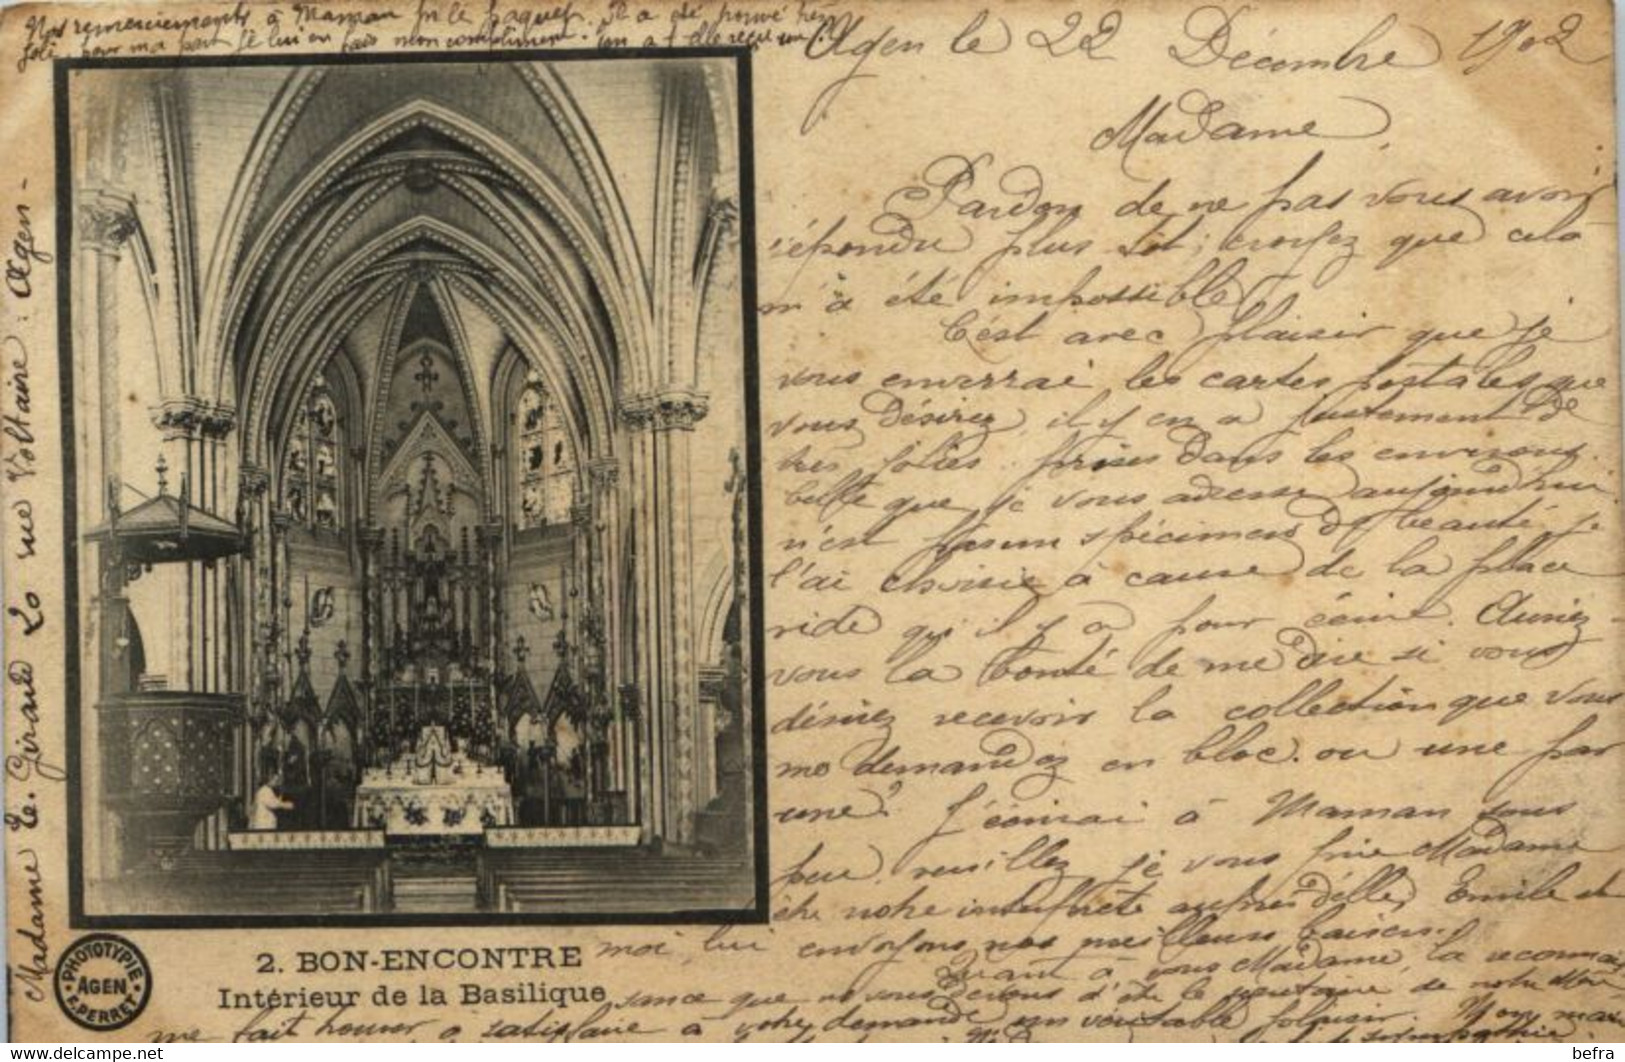 Nos remerciements à Maman pr le paquet. Il a été trouvé très
joli pour ma part je lui en fais mon compliment. en a-t-elle reçu un?
Agen le 22 Décembre 1902
Madame,
Pardon de ne pas vous avoir
répondu plus tôt; croyez que cela
m'a été impossible
C'est avec plaisir que je
vous enverrai les cartes postales que
vous désirez, il y en a justement de
très jolies prises dans les environs.
Celle que je vous adresse aujourd'hui
n'est pas un spécimen de beauté, je
l'ai choisie à cause de la place
vide qu'il y a pour écrire. Auriez-
vous la bonté de me dire si vous
désirez recevoir la collection que vous
me demandez en bloc. ou une par
une? J'écrirai à Maman sous
peu, veuillez je vous prie Madame
être notre interprète auprès d'elle, Emile et
moi, lui envoyons nos meilleurs baisers.
Quant à vous Madame, la reconnais
sance que nous vous devons d'être le de notre Mère
me fait trouver à satisfaire à votre demande un véritable plaisir. Mon mari
Madame Le. Giraud 20 rue Voltaire: Agen-
2. BON-ENCONTRE
Intérieur de la Basilique
PHOTOTYPIE
AGEN
F. PERRET